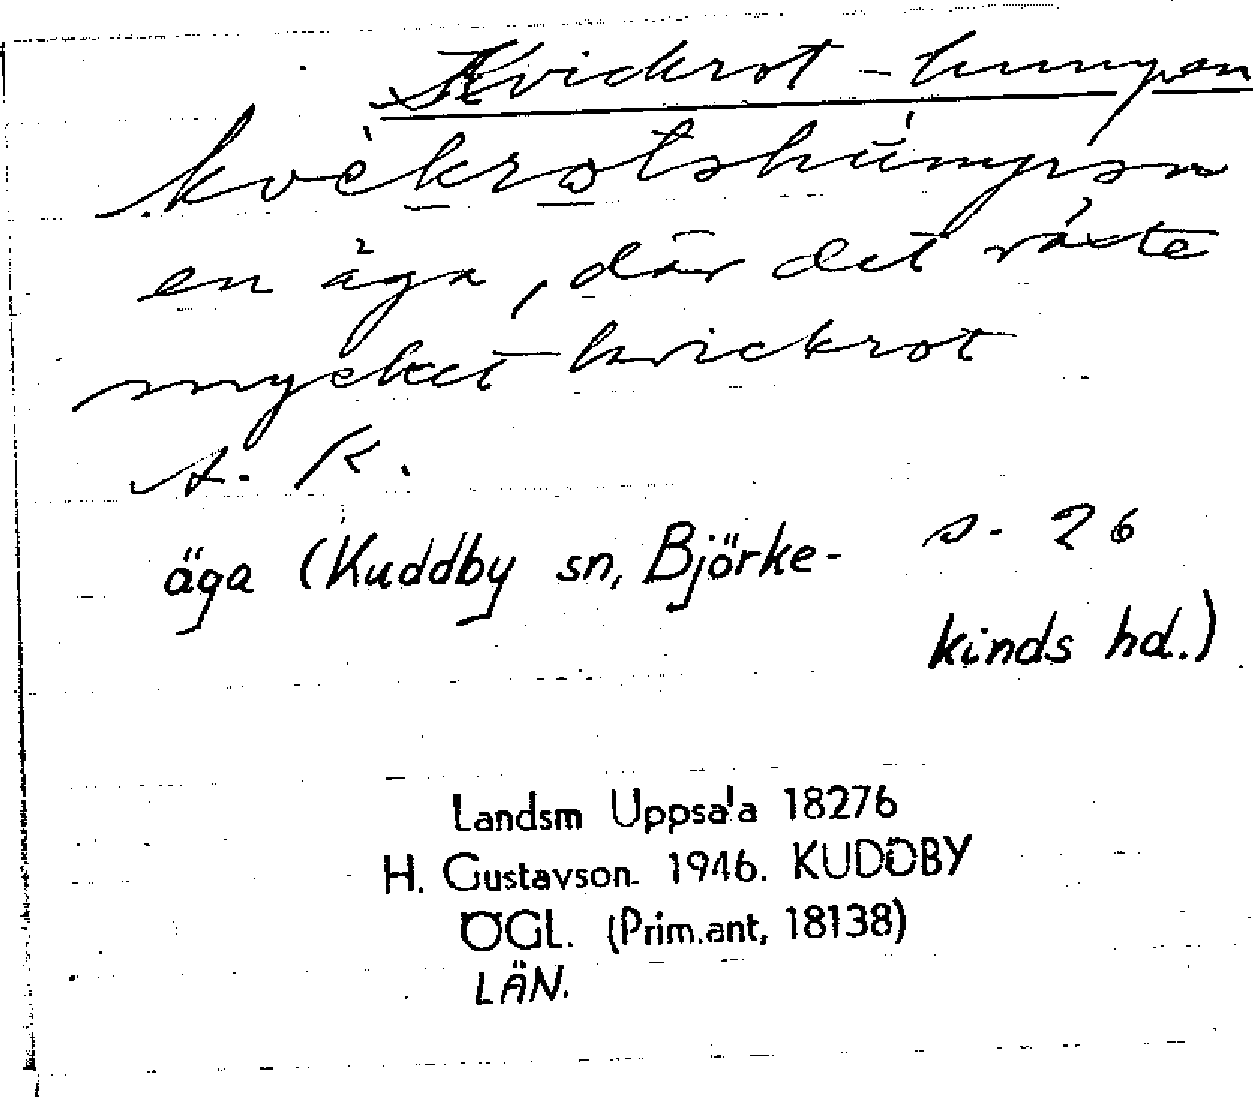 Kvickrot-humpen
kvèkrotshúmpən
en äga, där det växte
mycket kvickrot
A. K.
äga (Kuddby sn, Björke- s. 26
kinds hd.)
Landsm Uppsala 18276
H. Gustavson. 1946. KUDDBY
ÖGL. (Prim.ant, 18138)
LÄN.